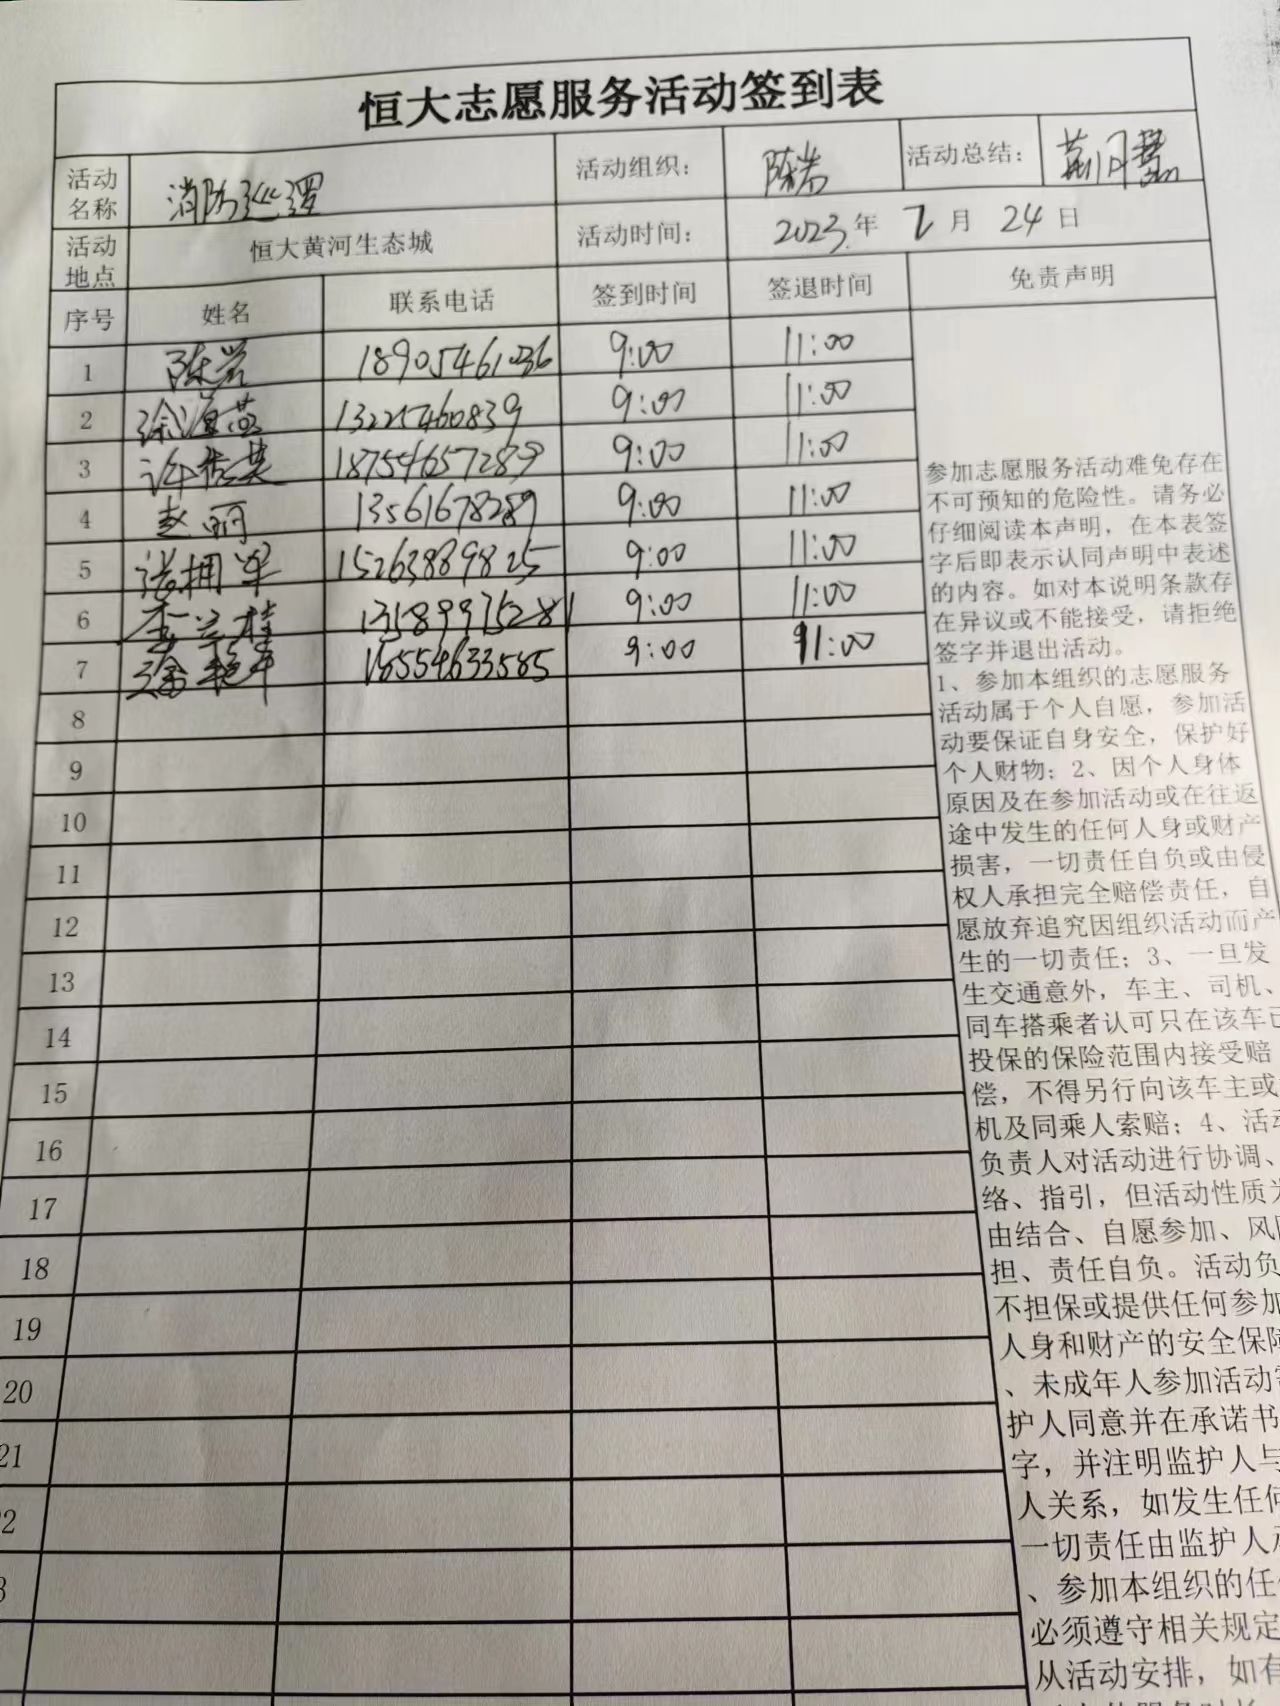 恒大志愿服务活动签到表
活动名称 消防巡逻 活动组织： 陈岩 活动总结：
活动地点 恒大黄河生态城 活动时间： 2023年 2月 24日
序号 姓名 联系电话 签到时间 签退时间 免责声明
1 陈岩 18905461036 9:00 11:00
2 徐海燕 13225460839 9:00 11:00
3 许秀英 18754657289 9:00 11:00
4 赵丽 13561678289 9:00 11:00
5 张拥军 15263889825 9:00 11:00
6 李兰桂 13589975281 9:00 11:00
7 9:00 11:00
8
9
10
11
12
13
14
15
16
17
18
19
20
21
参加志愿服务活动难免存在
不可预知的危险性。请务必
仔细阅读本声明，在本表签
字后即表示认同声明中表述
的内容。如对本说明条款存
在异议或不能接受，请拒绝
签字并退出活动。
1、参加本组织的志愿服务
活动属于个人自愿，参加活
动要保证自身安全，保护好
个人财物；2、因个人身体
原因及在参加活动或在往返
途中发生的任何人身或财产
损害，一切责任自负或由侵
权人承担完全赔偿责任，自
愿放弃追究因组织活动而产
生的一切责任；3、一旦发
生交通意外，车主、司机、
同车搭乘者认可只在该车已
投保的保险范围内接受赔
偿，不得另行向该车主或
机及同乘人索赔；4、活动
负责人对活动进行协调、
络、指引，但活动性质为
由结合、自愿参加、风险
担、责任自负。活动负
不担保或提供任何参加
人身和财产的安全保障
、未成年人参加活动需
护人同意并在承诺书
字，并注明监护人与
人关系，如发生任何
一切责任由监护人承
、参加本组织的任何
必须遵守相关规定
从活动安排，如有